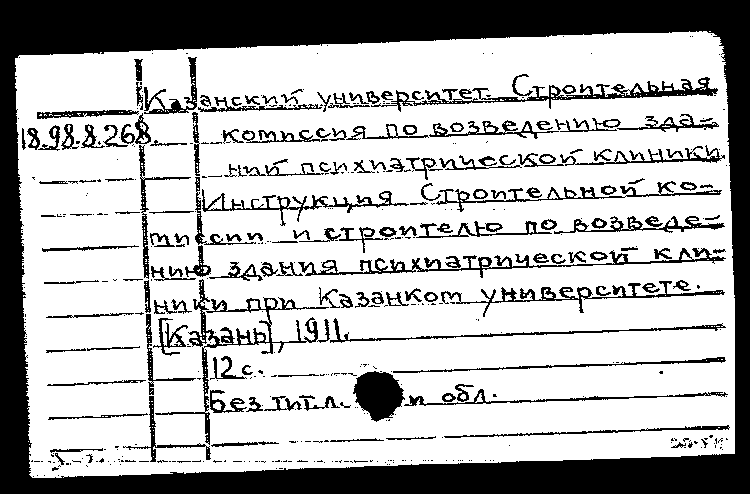 Казанский университет. Строительная
18.98.8.268. комиссия по возведению зда-
ний психиатрической клиники.
Инструкция Строительной ко-
миссии и строителю по возведе-
нию здания психиатрической кли-
ники при Казанком университете.
[Казань], 1911.
12 с.
Без тит.л. и обл.